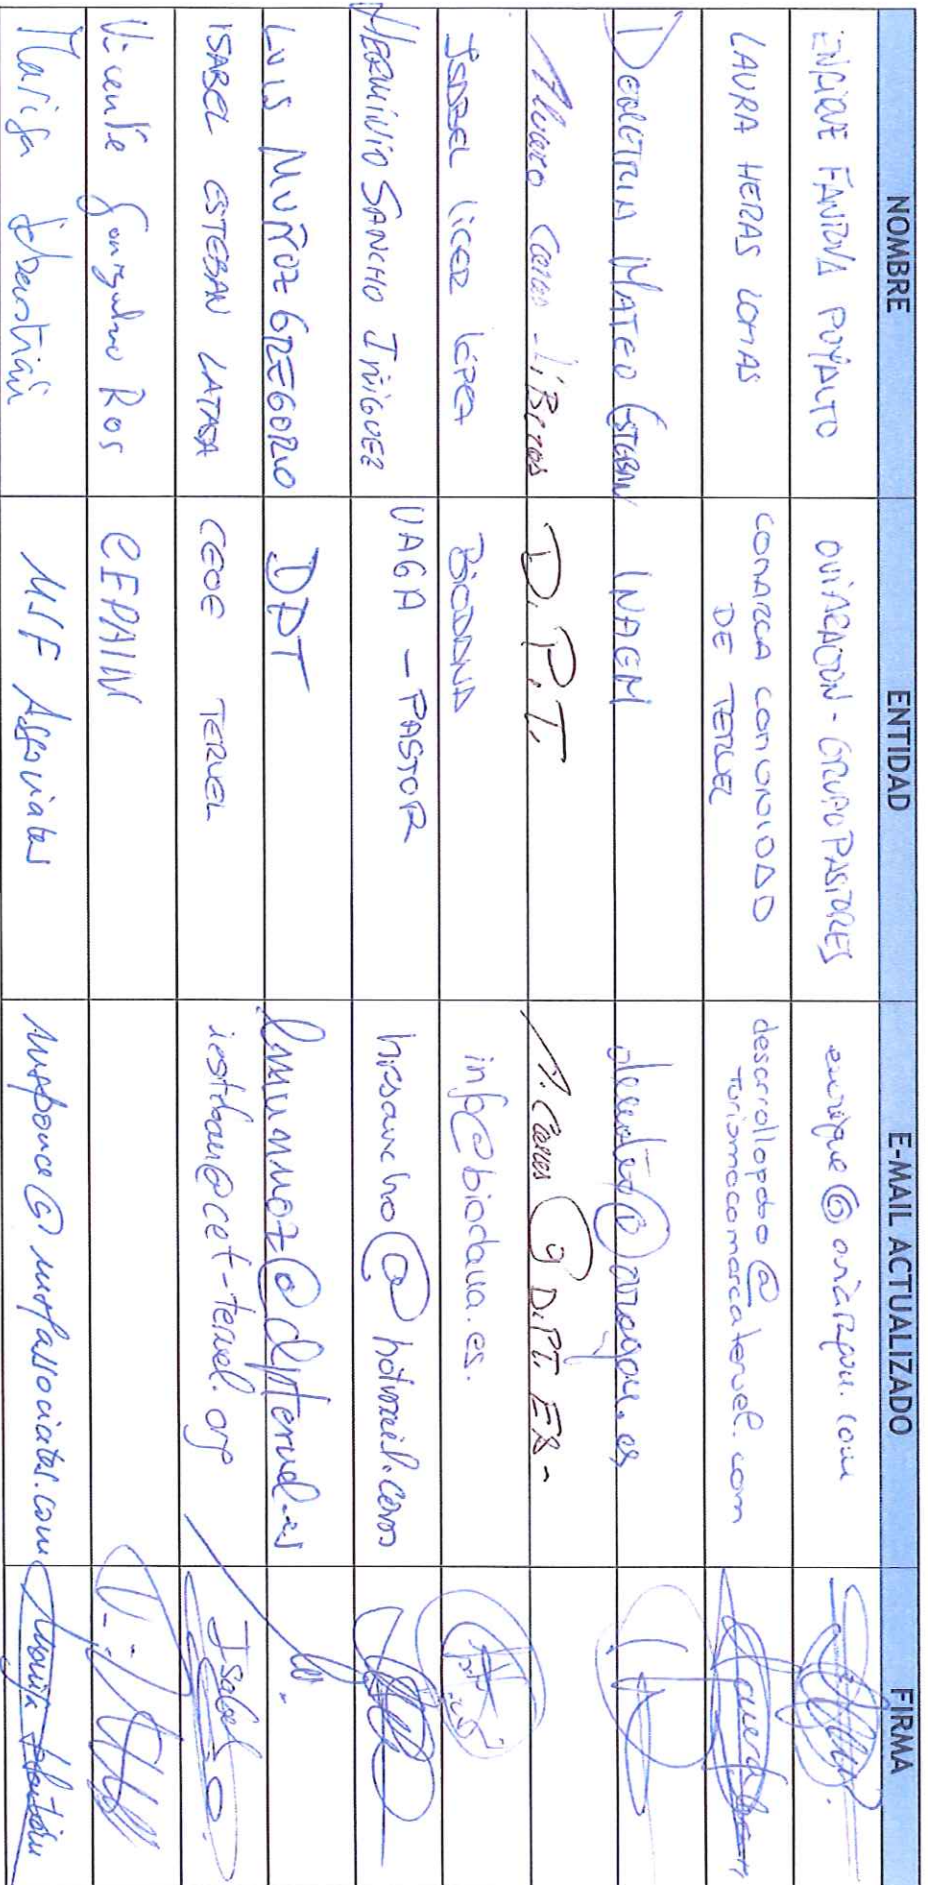 NOMBRE ENTIDAD E-MAIL ACTUALIZADO FIRMA
ENRIQUE FANDOVA POYALTO OVIARAGON - GRUPO PASTORES enrique@oviaragon.com
LAURA HERAS LOMAS COMARCA COMUNIDAD
DE TERUEL desarrollopdo@
turismocomarcateruel.com
DEMETRIA MATEO ESTEBAN INAEM dmateo@aragon.es
Alvaro D.P.T. @DPT.ES-
ISABEL LICER LÓPEZ BIODANA info@biodana.es.
HERMINIO SANCHO IÑIGUEZ UAGA - PASTOR hisancho@hotmail.com
LUIS MUÑOZ GREGORIO DPT lmunnoz@dpteruel.es
ISABEL ESTEBAN LATASA CEOE TERUEL iesteban@cet-teruel.org Isabel
Vicente Gonzalvo Ros CEPAIM
Marisa Sebastián MSF Associates msfponce@msfassociates.com Marisa Sebastián